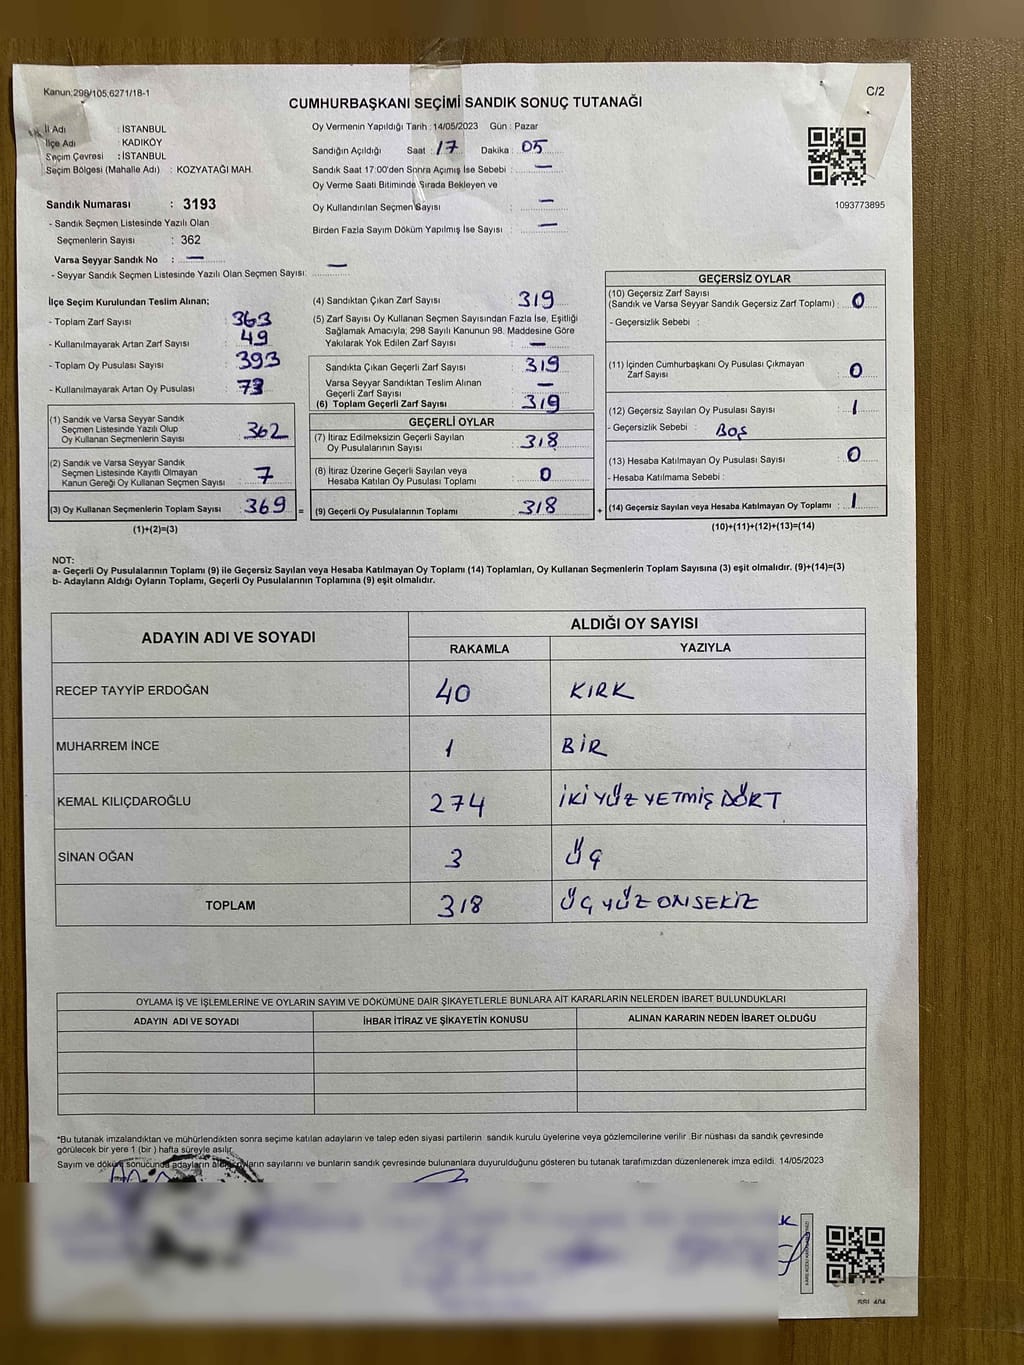 Kanun;298/105,6271/18-1
C/2
CUMHURBAŞKANI SEÇİMİ SANDIK SONUÇ TUTANAĞI
İl Adı : İSTANBUL
İlçe Adı : KADIKÖY
Seçim Çevresi : İSTANBUL
Seçim Bölgesi (Mahalle Adı) : KOZYATAĞI MAH.
Sandık Numarası : 3193
- Sandık Seçmen Listesinde Yazılı Olan
Seçmenlerin Sayısı : 362
Varsa Seyyar Sandık No : —
- Seyyar Sandık Seçmen Listesinde Yazılı Olan Seçmen Sayısı: —
Oy Vermenin Yapıldığı Tarih : 14/05/2023 Gün : Pazar
Sandığın Açıldığı Saat : 17 Dakika : 05
Sandık Saat 17:00'den Sonra Açımış İse Sebebi : —
Oy Verme Saati Bitiminde Sırada Bekleyen ve
Oy Kullandırılan Seçmen Sayısı : —
Birden Fazla Sayım Döküm Yapılmış İse Sayısı : —
1093773895
İlçe Seçim Kurulundan Teslim Alınan;
- Toplam Zarf Sayısı : 363
- Kullanılmayarak Artan Zarf Sayısı : 49
- Toplam Oy Pusulası Sayısı : 393
- Kullanılmayarak Artan Oy Pusulası : 73
(1) Sandık ve Varsa Seyyar Sandık
Seçmen Listesinde Yazılı Olup
Oy Kullanan Seçmenlerin Sayısı : 362
(2) Sandık ve Varsa Seyyar Sandık
Seçmen Listesinde Kayıtlı Olmayan
Kanun Gereği Oy Kullanan Seçmen Sayısı : 7
(3) Oy Kullanan Seçmenlerin Toplam Sayısı : 369 =
(1)+(2)=(3)
(4) Sandıktan Çıkan Zarf Sayısı : 319
(5) Zarf Sayısı Oy Kullanan Seçmen Sayısından Fazla İse, Eşitliği
Sağlamak Amacıyla; 298 Sayılı Kanunun 98. Maddesine Göre
Yakılarak Yok Edilen Zarf Sayısı : —
Sandıkta Çıkan Geçerli Zarf Sayısı : 319
Varsa Seyyar Sandıktan Teslim Alınan
Geçerli Zarf Sayısı : —
(6) Toplam Geçerli Zarf Sayısı : 319
GEÇERLİ OYLAR
(7) İtiraz Edilmeksizin Geçerli Sayılan
Oy Pusulasının Sayısı : 318
(8) İtiraz Üzerine Geçerli Sayılan veya
Hesaba Katılan Oy Pusulası Toplamı : 0
(9) Geçerli Oy Pusulalarının Toplamı : 318 +
GEÇERSİZ OYLAR
(10) Geçersiz Zarf Sayısı
(Sandık ve Varsa Seyyar Sandık Geçersiz Zarf Toplamı) : 0
- Geçersizlik Sebebi :
(11) İçinden Cumhurbaşkanı Oy Pusulası Çıkmayan
Zarf Sayısı : 0
(12) Geçersiz Sayılan Oy Pusulası Sayısı : 1
- Geçersizlik Sebebi : Boş
(13) Hesaba Katılmayan Oy Pusulası Sayısı : 0
- Hesaba Katılmama Sebebi :
(14) Geçersiz Sayılan veya Hesaba Katılmayan Oy Toplamı : 1
(10)+(11)+(12)+(13)=(14)
NOT:
a- Geçerli Oy Pusulalarının Toplamı (9) ile Geçersiz Sayılan veya Hesaba Katılmayan Oy Toplamı (14) Toplamları, Oy Kullanan Seçmenlerin Toplam Sayısına (3) eşit olmalıdır. (9)+(14)=(3)
b- Adayların Aldığı Oyların Toplamı, Geçerli Oy Pusulalarının Toplamına (9) eşit olmalıdır.
ADAYIN ADI VE SOYADI
ALDIĞI OY SAYISI
RAKAMLA YAZIYLA
RECEP TAYYİP ERDOĞAN 40 KIRK
MUHARREM İNCE 1 BİR
KEMAL KILIÇDAROĞLU 274 İKİYÜZ YETMİŞ DÖRT
SİNAN OĞAN 3 ÜÇ
TOPLAM 318 ÜÇ YÜZ ONSEKİZ
OYLAMA İŞ VE İŞLEMLERİNE VE OYLARIN SAYIM VE DÖKÜMÜNE DAİR ŞİKAYETLERLE BUNLARA AİT KARARLARIN NELERDEN İBARET BULUNDUKLARI
ADAYIN ADI VE SOYADI İHBAR İTİRAZ VE ŞİKAYETİN KONUSU ALINAN KARARIN NEDEN İBARET OLDUĞU
*Bu tutanak imzalandıktan ve mühürlendikten sonra seçime katılan adayların ve talep eden siyasi partilerin sandık kurulu üyelerine veya gözlemcilerine verilir .Bir nüshası da sandık çevresinde
görülecek bir yere 1 (bir ) hafta süreyle asılır.
Sayım ve döküm sonucunda adayların aldığı oyların sayılarını ve bunların sandık çevresinde bulunanlara duyurulduğunu gösteren bu tutanak tarafımızdan düzenlenerek imza edildi. 14/05/2023